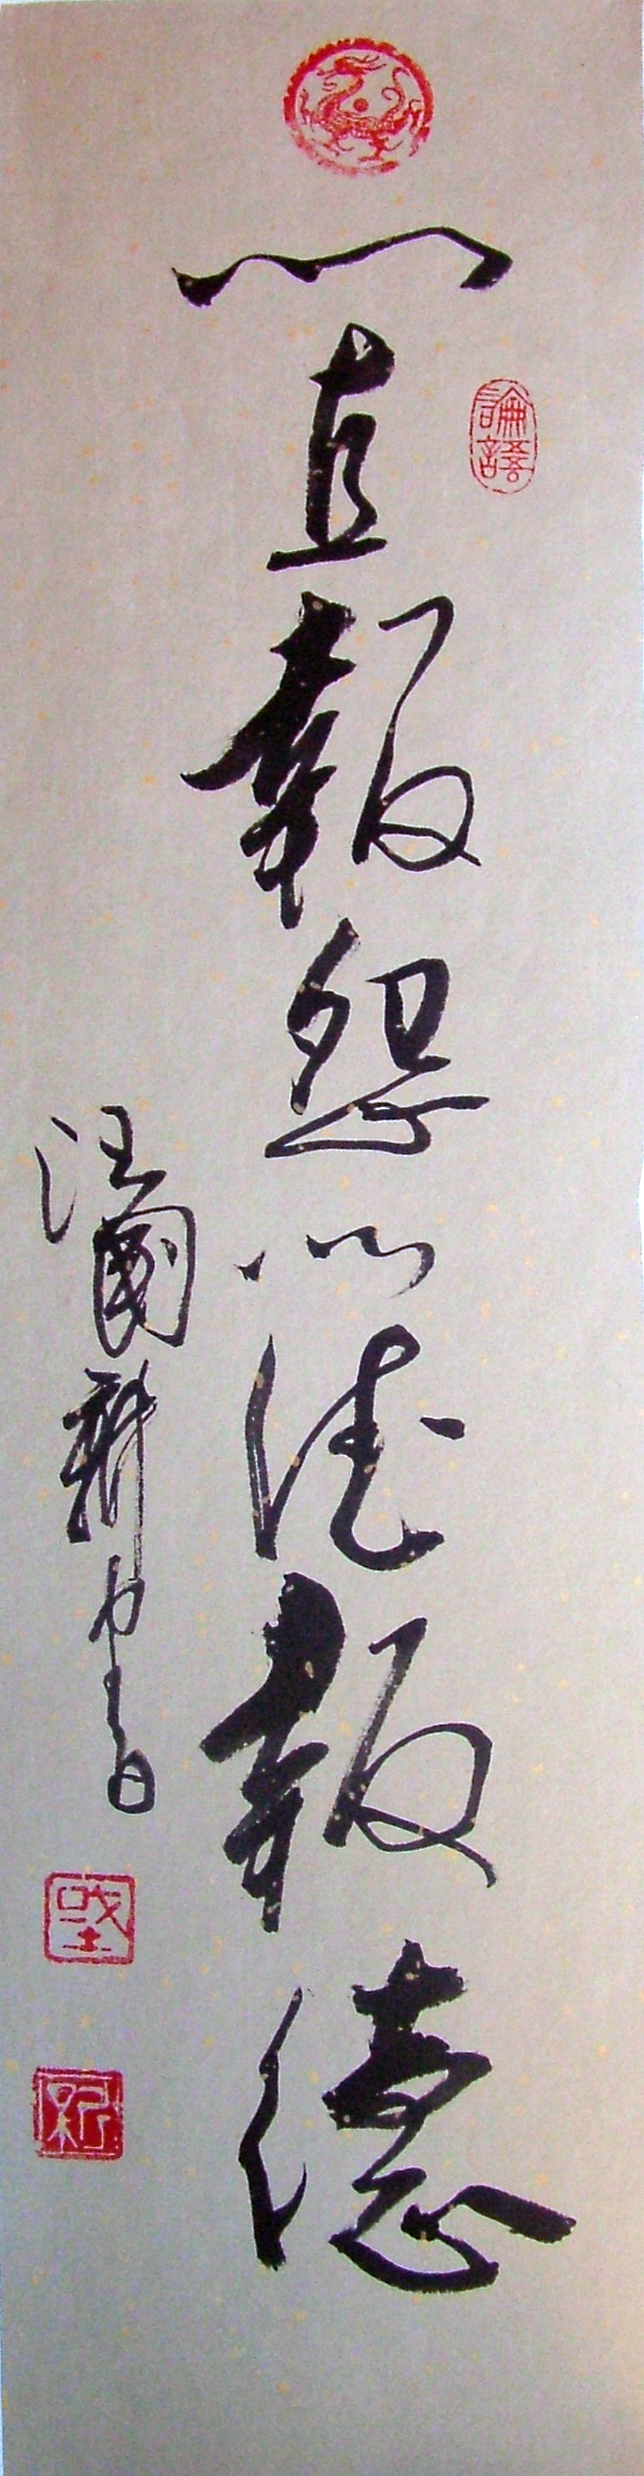 以直報怨以德報德
論語
汪國新書